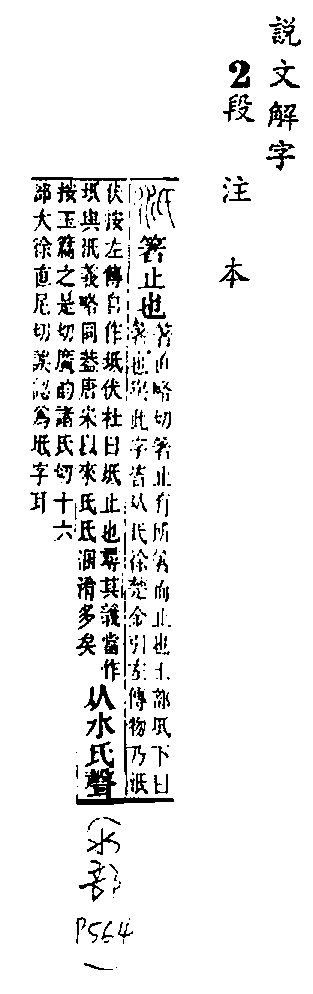 説文解字
2段 注 本
汦 箸止也
箸直略切箸止有所箸而止也土部坁下曰
箸也與此字皆从氏徐楚金引左傳物乃汦
伏按左傳自作坁伏杜曰坁止也尋其義當作
坁與汦義略同葢唐宋以來氏氐溷淆多矣
从水氏聲
按玉篇之是切廣韵諸氏切十六
部大徐直尼切誤認爲坻字耳
(水部
P564